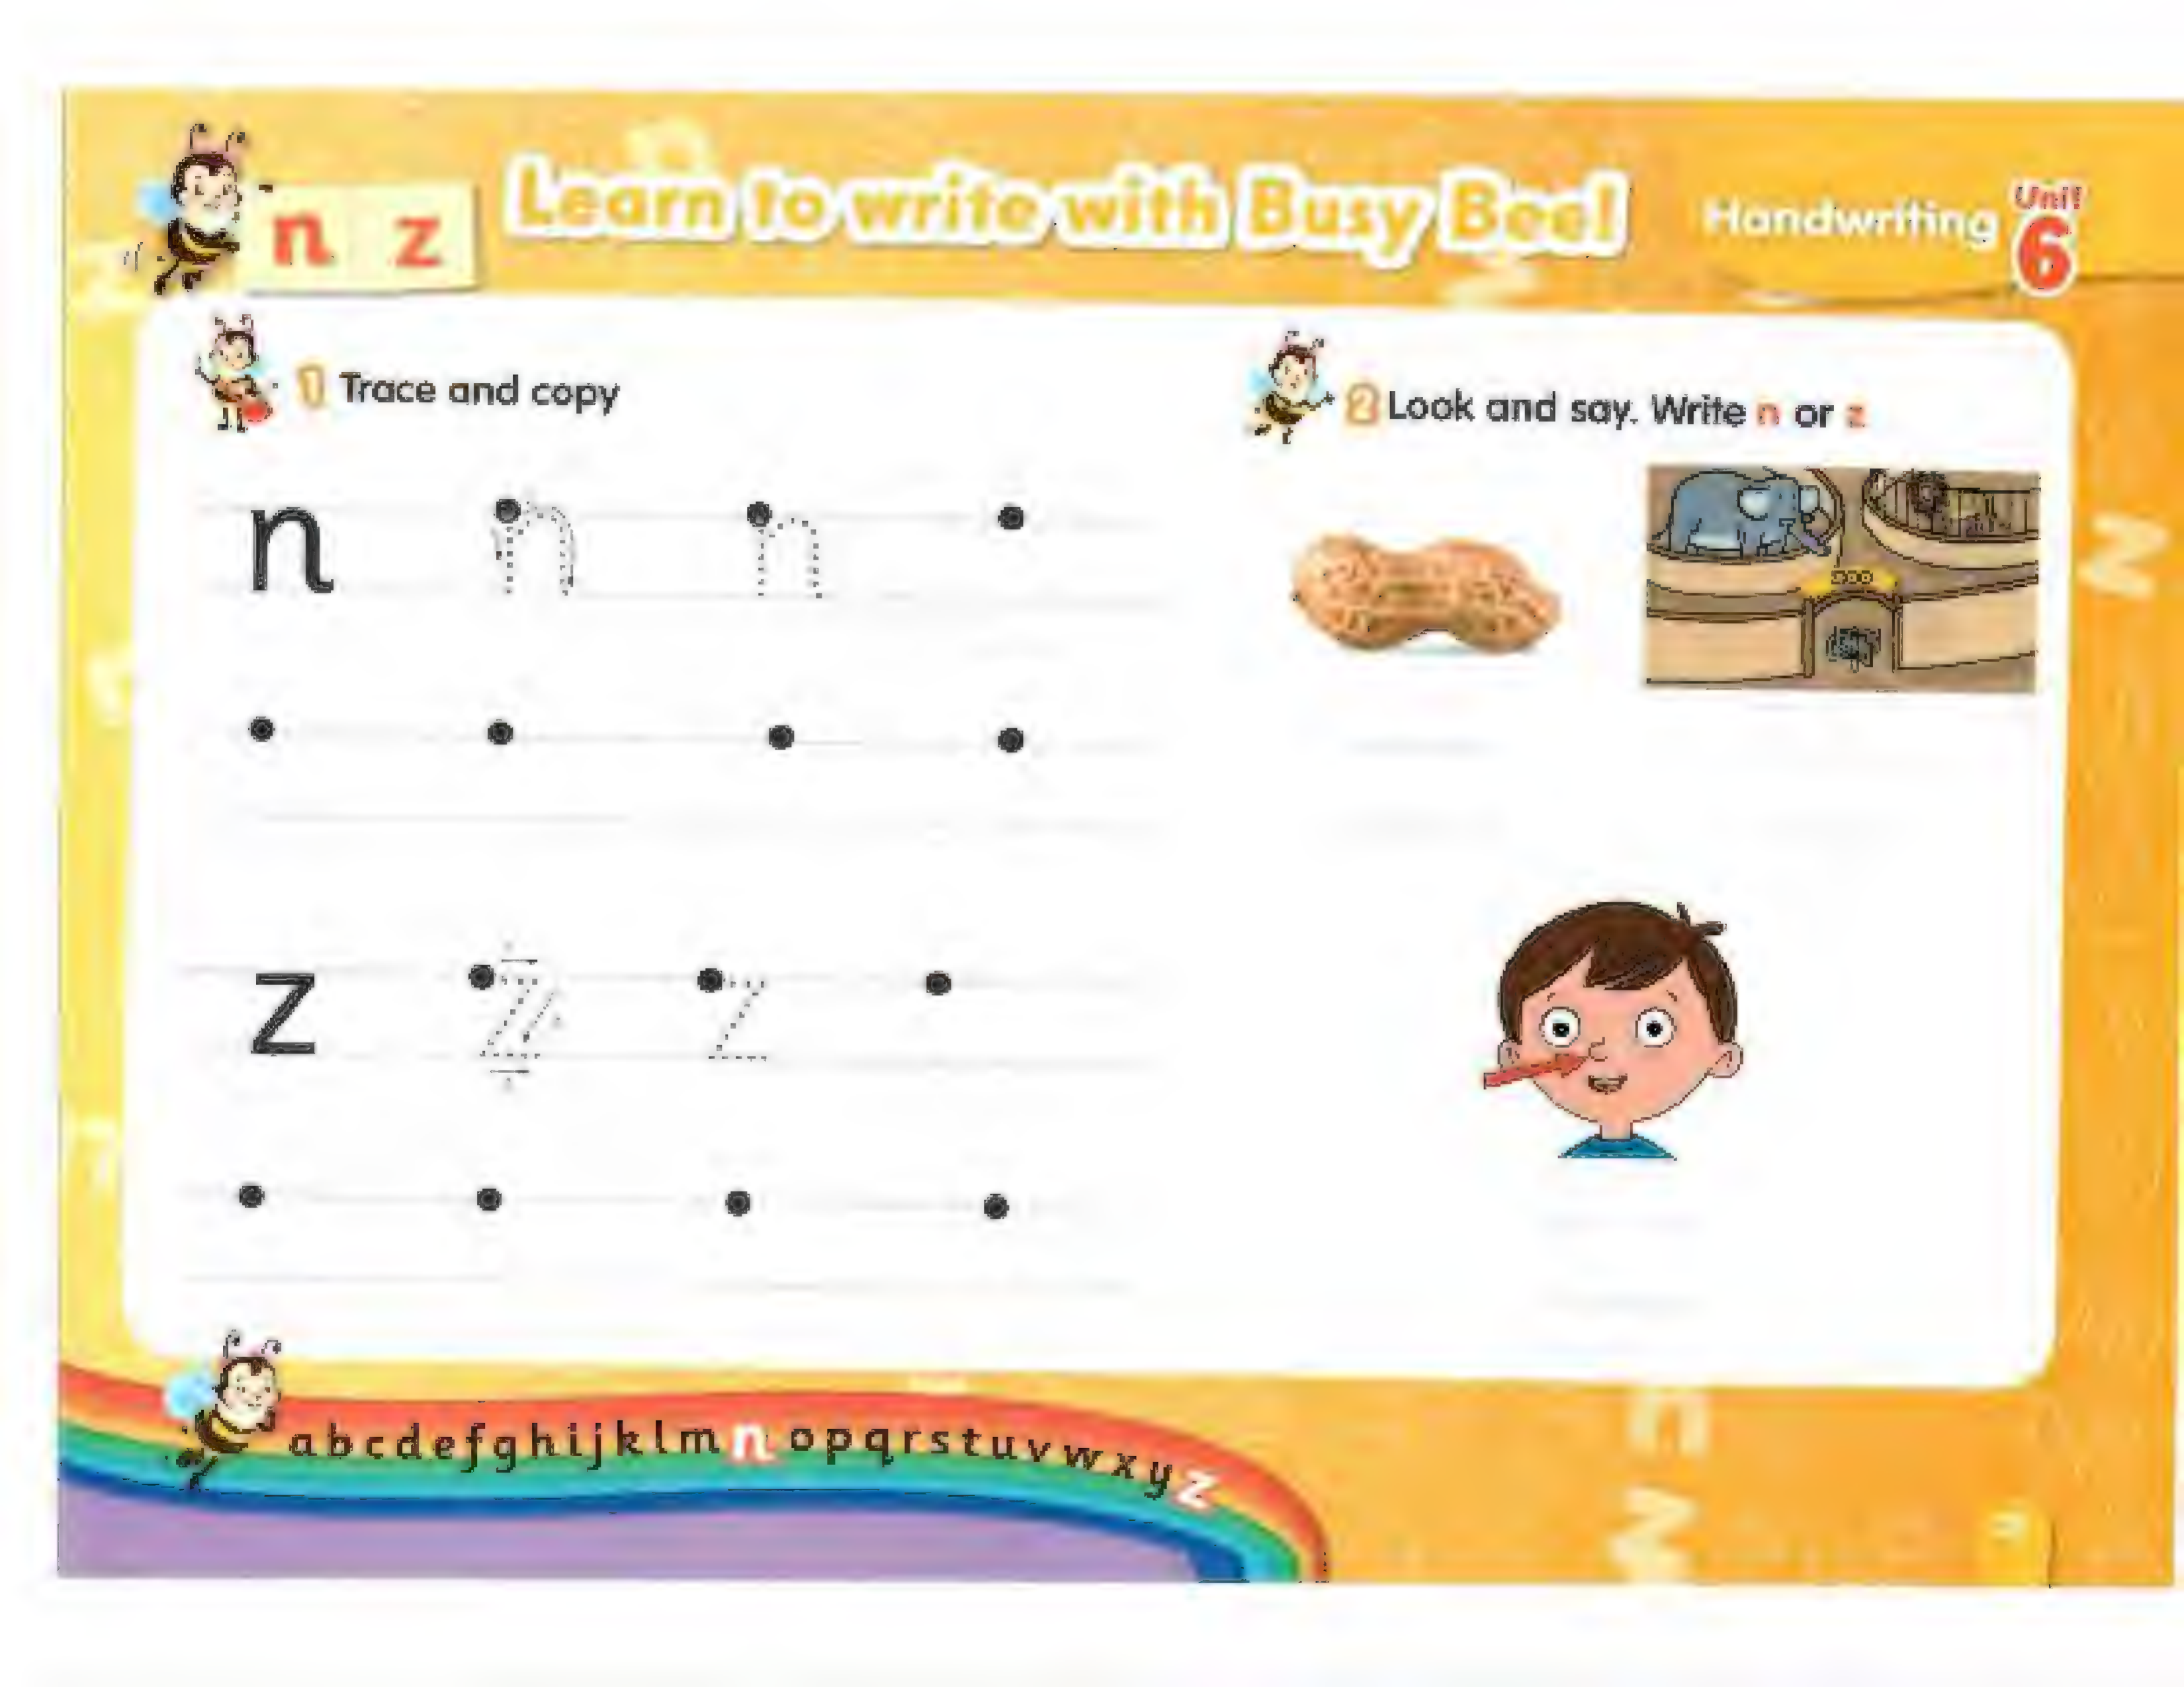 n z
Learn to write with Busy Bee!
Handwriting
Unit
6
1 Trace and copy
n n n
z z z
2 Look and say. Write n or z
ZOO
a b c d e f g h i j k l m n o p q r s t u v w x y z